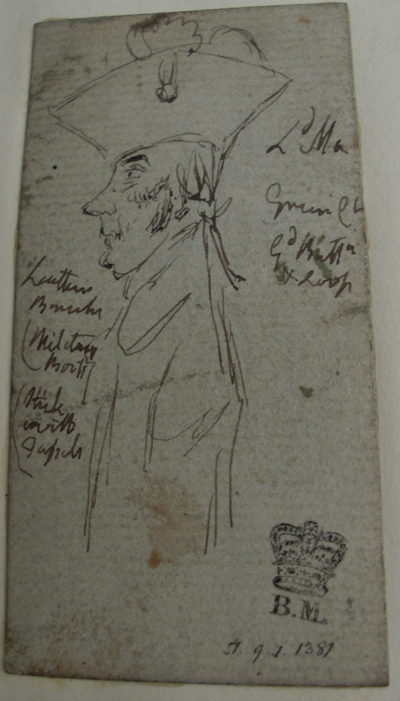 Ld Ma
Green Ct
Gd Butt n
& loop
Leather
Breeches
(Military
Boots)
(Stick
with
Tassels
B.M.
51. 9 1. 1381